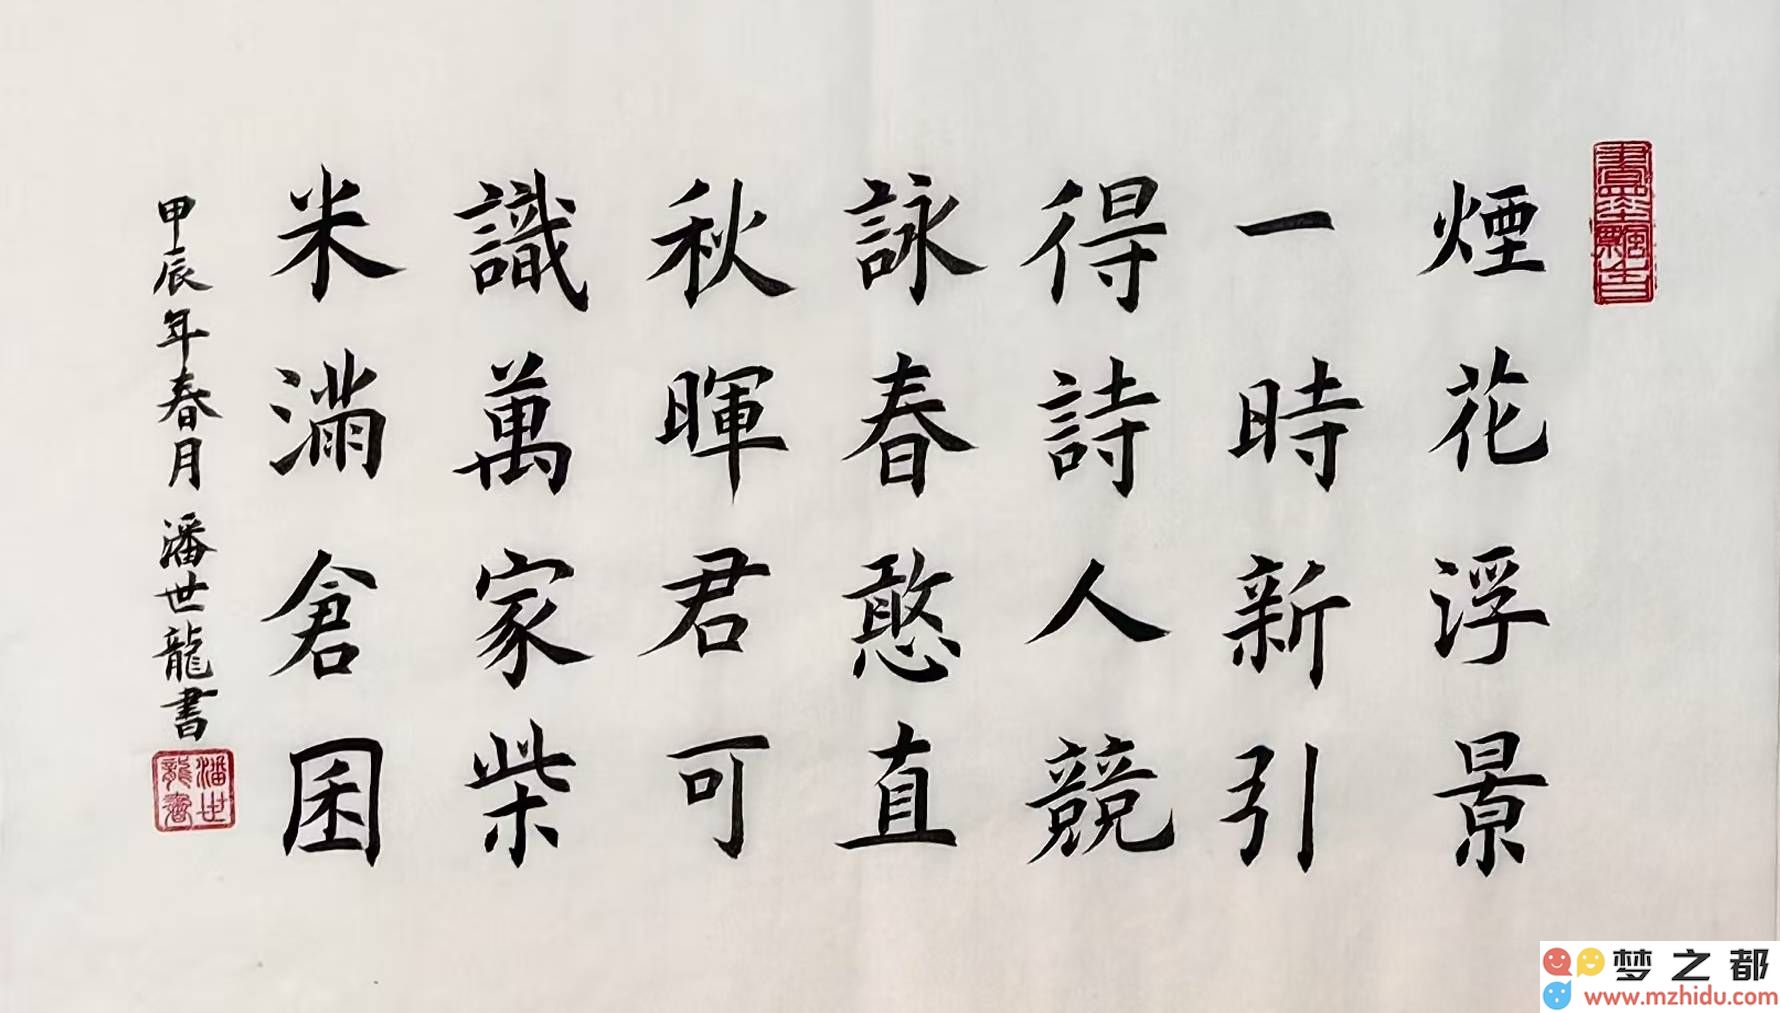 煙花浮景
一時新引
得詩人競
詠春憨直
秋暉君可
識萬家柴
米滿倉囷
甲辰年春月潘世龍書
潘世龍
梦之都
www.mzhidu.com